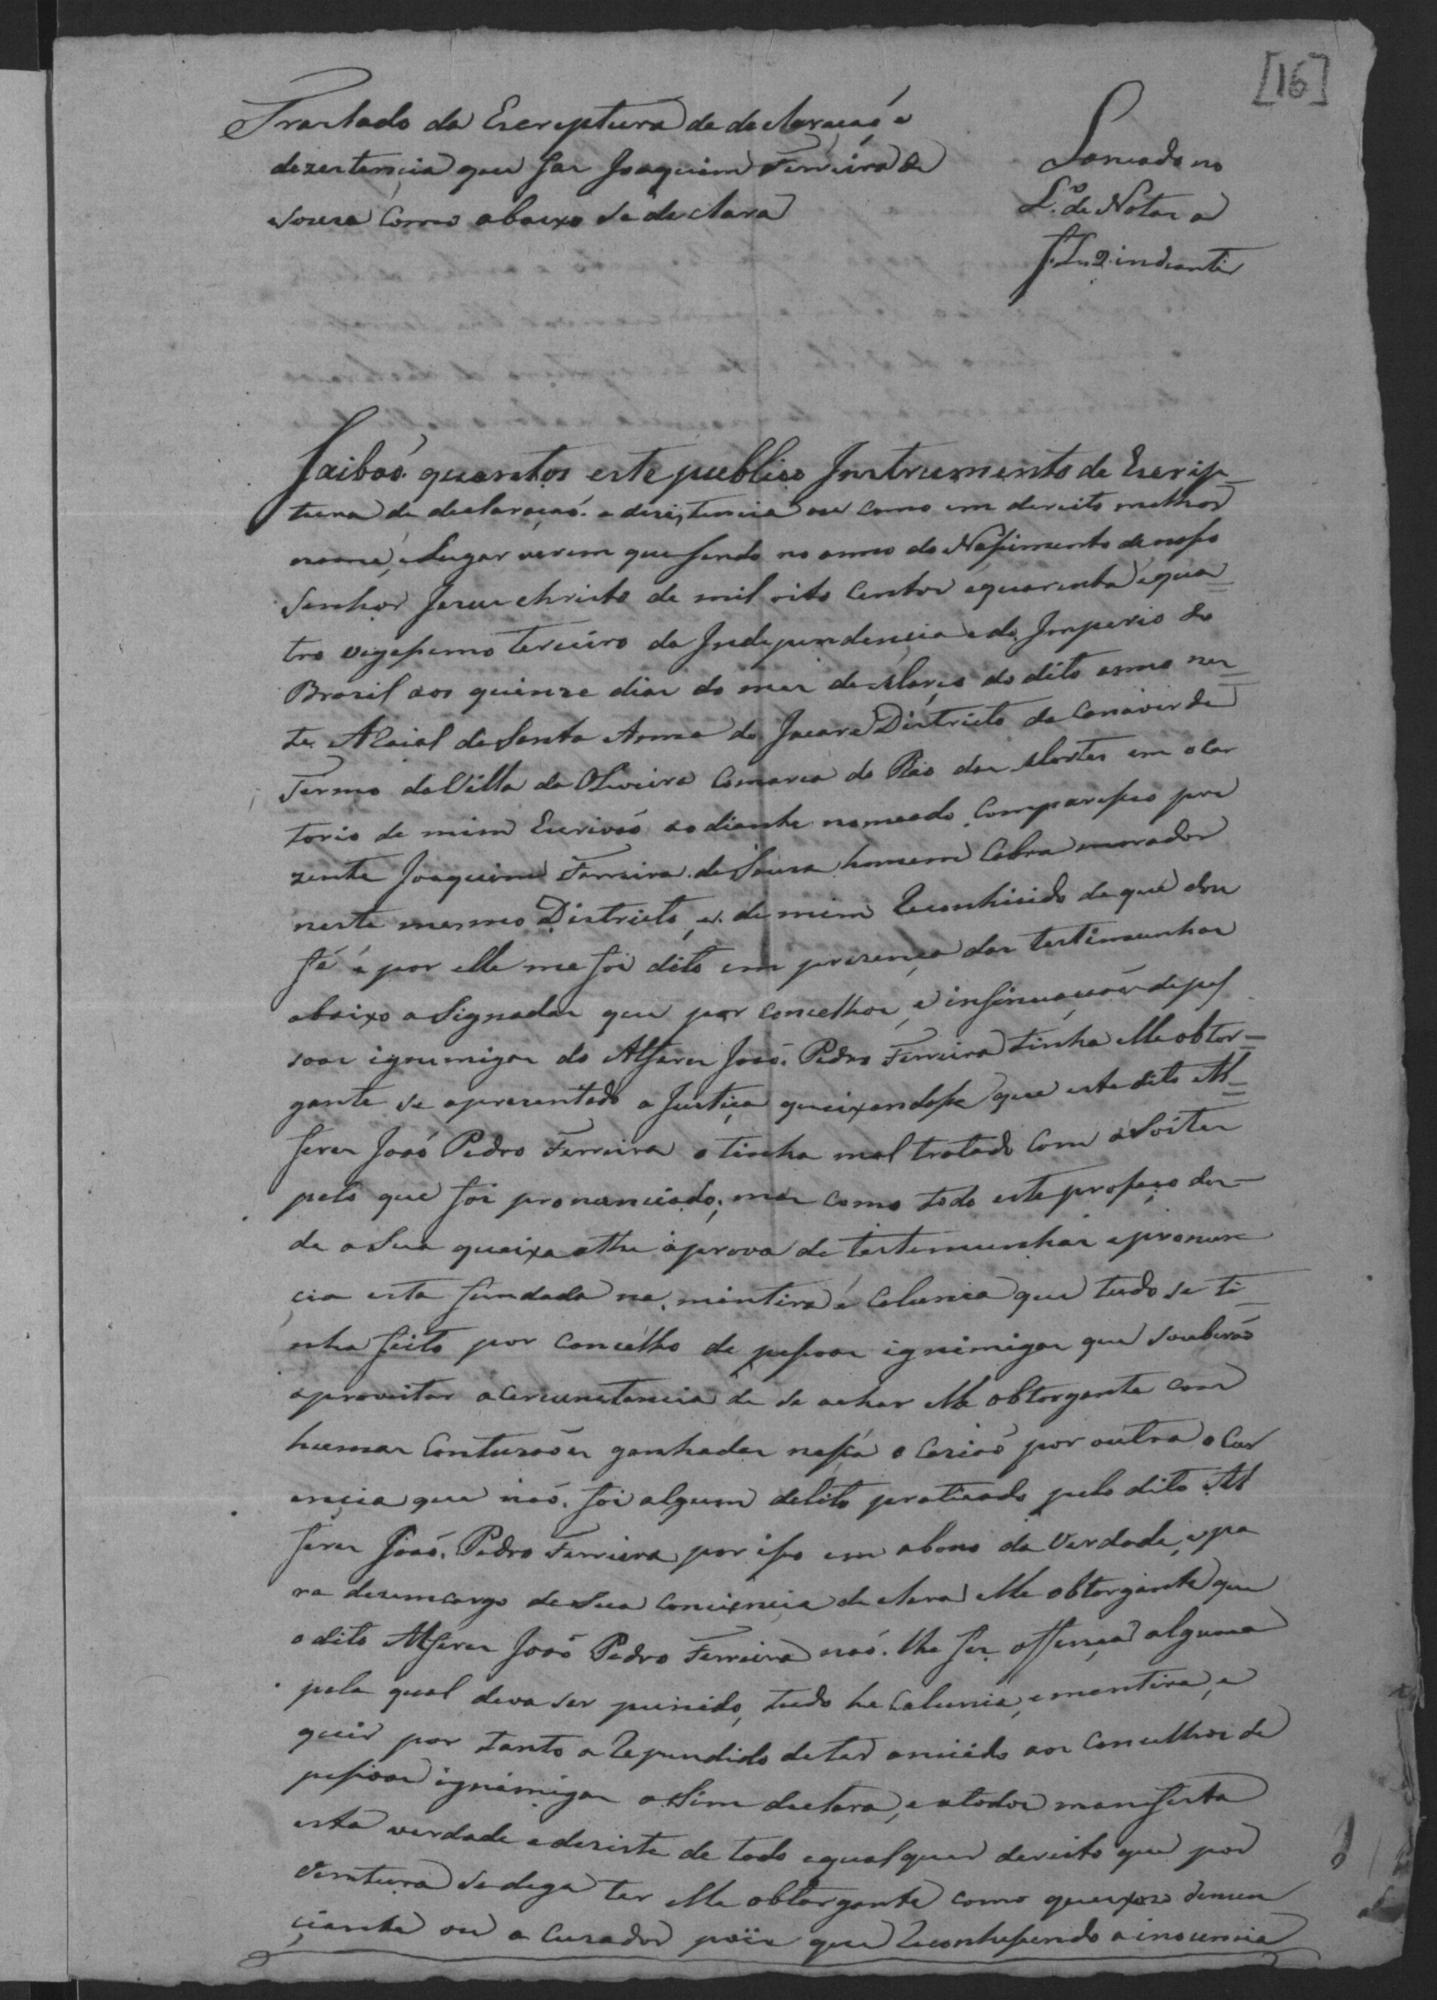 [16]
Traslado da Escriptura de declaraçaó e
dezestencia que faz Joaquim Ferreira de
Souza Como abaixo se declara
Lancado no
L.º de Notas a
f. 2 indeante
Saibaó quantos este publico Instrumento de Escrip-
tura de declaracaó e desistencia ou como em dereito melhor
nome, e Lugar verem que sendo no anno do Nassimento de nosso
Senhor Jesus christo de mil oito centos e quarenta e qua-
tro vegessimo terceiro da Independencia e do Imperio do
Brazil aos quinze dias do mes de Março do dito anno nes-
te Araial de Santa Anna do Jacare Districto da Canaverde
Termo da Villa da Oliveira Comarca do Rio das Mortes em o Car
torio de mim Escrivaó ao diante nomeado Comparesseo pre
zente Joaquim Ferreira de Souza homem Cabra morador
neste mesmo Districto, e de mim Reconhicido de que dou
fé e por elle me foi dito em presença das testimunhas
abaixo asignadas que por concelhos, e insinuacoẽs de pes
soas ignimigas do Alferes Joaó Pedro Ferreira tinha elle obtor-
gante se apresentado a Justiça queixandosse que este dito Al-
feres Joaó Pedro Ferreira o tinha mal tratado com asoites
pelo que foi pronunciado; mas como todo este prosseço des-
de a Sua queixa athe a prova de testemunhas e pronun
cia esta fundada na mentira e Calunia que tudo se ti-
nha feito por concelho de pessoas ignimigas que souberaõ
aproveitar a cercunstancia de se achar elle obtorgante com
humas Contusoẽs ganhadas nessa ocasiaó por outra o Cur
encia que naó foi algum delito praticado pelo dito Al
feres Joaó Pedro Ferreira por isso em abono da Verdade, e pa
ra desemcargo de Sua Conciencia declara elle obtorgante que
o dito Alferes Joaó Pedro Ferreira naó lhe fez offença alguma
pela qual deva ser punido, tudo he Calunia, e mentira, e
que por tanto a Rependido de ter anuido aos Concelhos de
pessoas ignimigas asim declara, e a todos manifesta
esta verdade e desiste de todo e qual quer dereito que por
ventura se dega ter elle obtorgante como queixozo denun
ciante ou a Cusador pois que Reconhessendo a inocencia